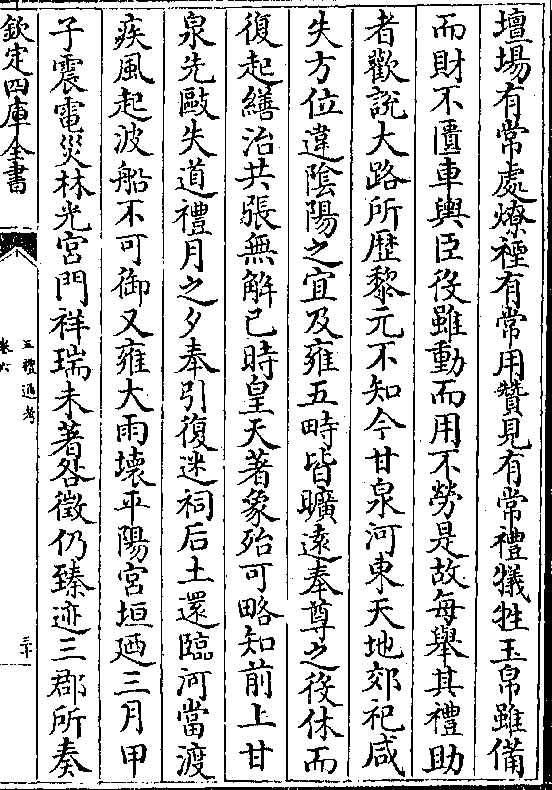 壇場有常處燎禋有常用贊見有常禮犧牲玉帛雖備
而財不匱車輿臣役雖動而用不勞是故每舉其禮助
者歡說大路所歴黎元不知今甘泉河東天地郊祀咸
失方位違隂陽之宜及雍五畤皆曠遠奉尊之役休而
復起繕治共張無解已時皇天著象殆可略知前上甘
泉先敺失道禮月之夕奉引復迷祠后土還臨河當渡
疾風起波船不可御又雍大雨壊平陽宮垣廼三月甲
子震電災林光宮門祥瑞未著咎徵仍臻迹三郡所奏
欽定四庫全書
五禮通考
卷六
三十